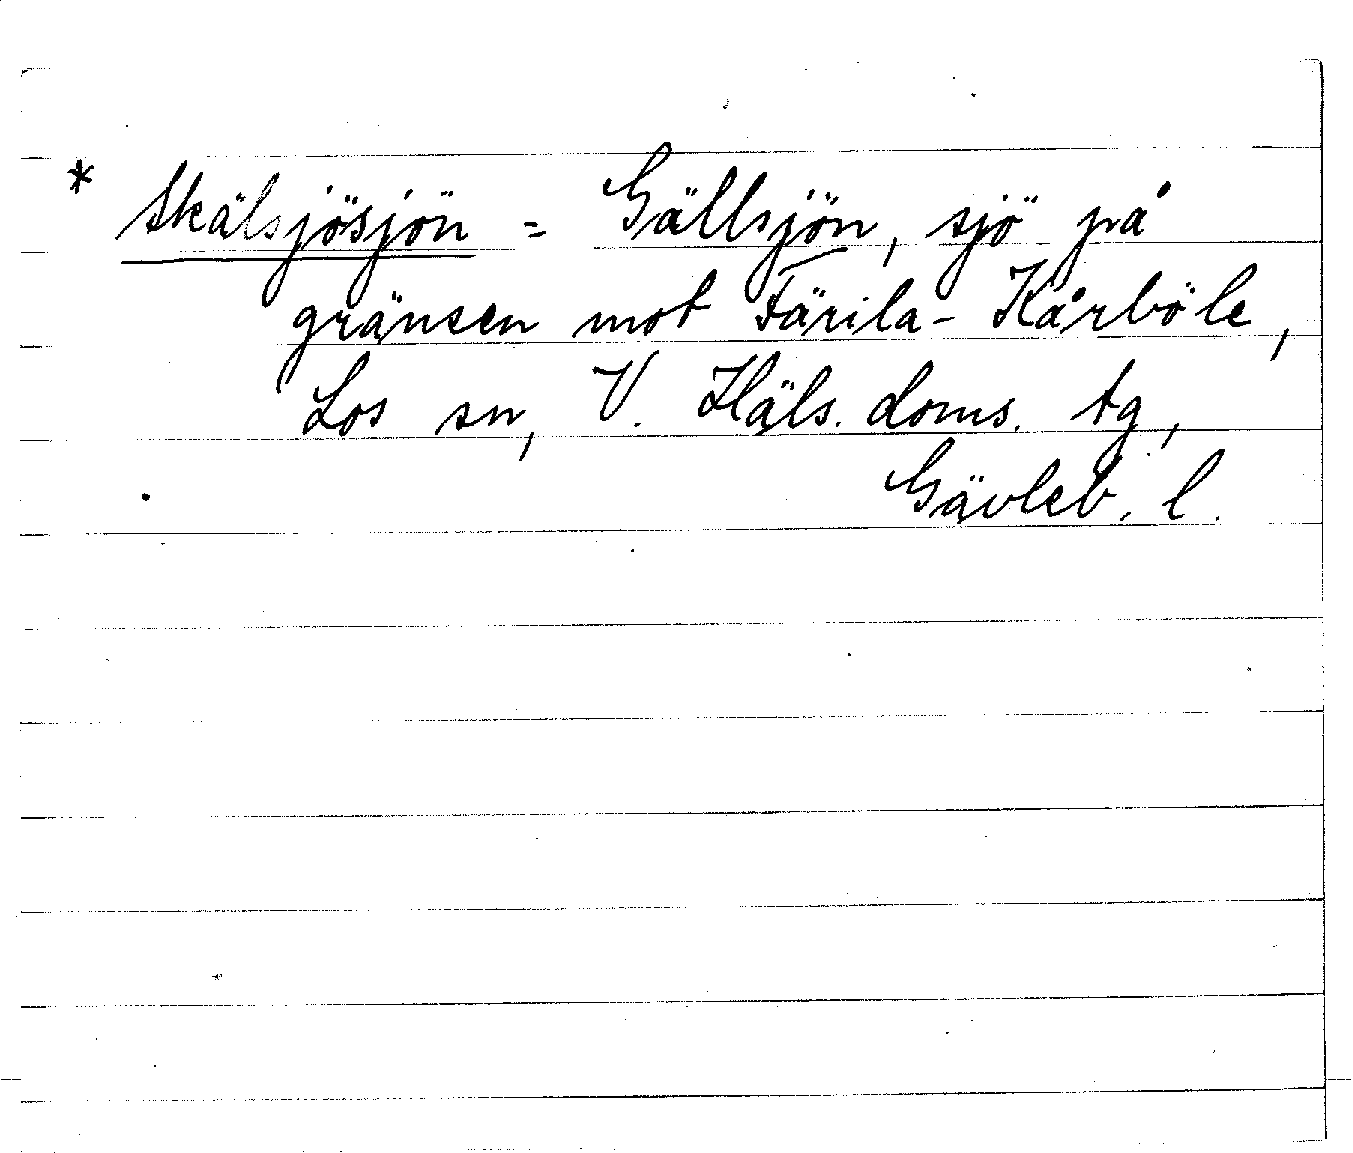 * Skälsjösjön = Gällsjön, sjö på
gränsen mot Färila-Kårböle,
Los sn, V. Häls. doms. tg,
Gävleb. l.